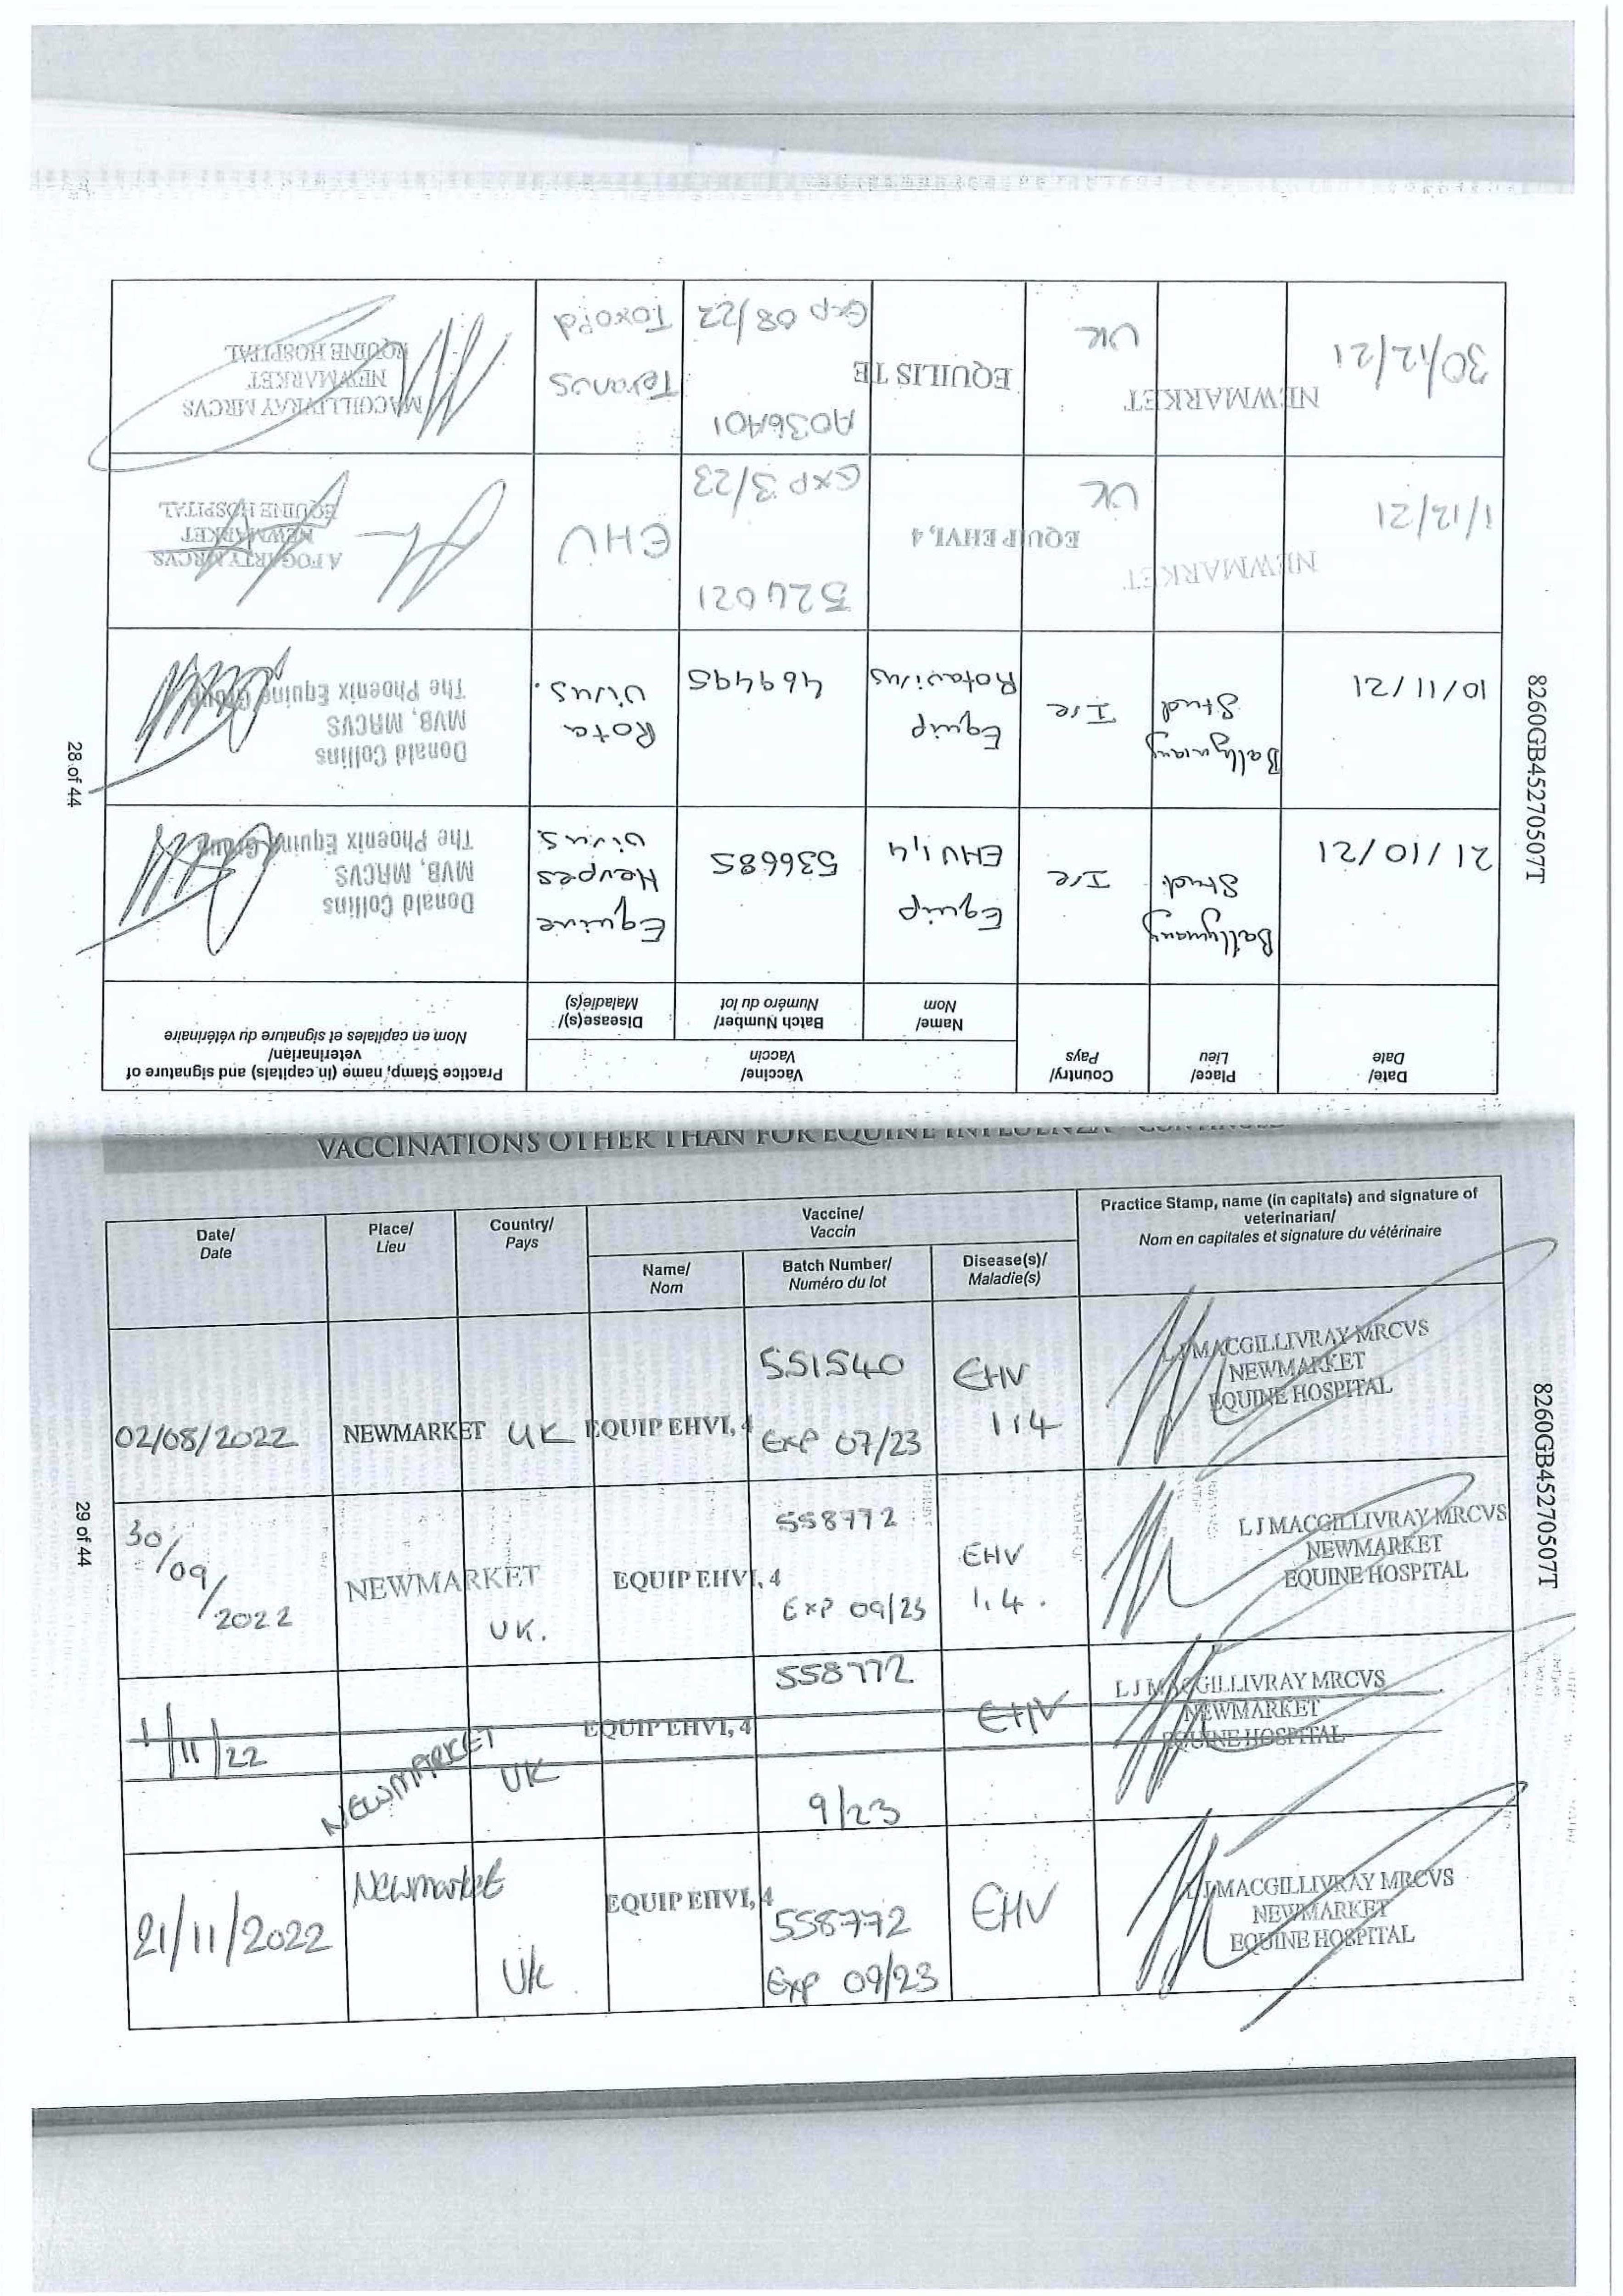 Date/
Date
Place/
Lieu
Country/
Pays
Vaccine/
Vaccin
Name/
Nom
Batch Number/
Numéro du lot
Disease(s)/
Maladie(s)
Practice Stamp, name (in capitals) and signature of
veterinarian/
Nom en capitales et signature du vétérinaire
21/10/21
Ballymany
Stud
Ire
Equip
EHV 1,4
536685
Equine
Herpes
Virus
Donald Collins
MVB, MRCVS
The Phoenix Equine Group
10/11/21
Ballymany
Stud
Ire
Equip
Rotavirus
469495
Rota
Virus.
Donald Collins
MVB, MRCVS
The Phoenix Equine Group
1/12/21
NEWMARKET
UK
EQUIP EHV1, 4
Exp 3/23
EHV
A FOGARTY MRCVS
NEWMARKET
EQUINE HOSPITAL
30/12/21
NEWMARKET
UK
EQUILIS TE
A036A01
Exp 08/22
Tetanus
Toxoid
MACGILLIVRAY MRCVS
NEWMARKET
EQUINE HOSPITAL
28 of 44
8260GB45270507T
VACCINATIONS OTHER THAN FOR EQUINE INFLUENZA - CONTINUED
Date/
Date
Place/
Lieu
Country/
Pays
Vaccine/
Vaccin
Name/
Nom
Batch Number/
Numéro du lot
Disease(s)/
Maladie(s)
Practice Stamp, name (in capitals) and signature of
veterinarian/
Nom en capitales et signature du vétérinaire
02/08/2022
NEWMARKET
UK
EQUIP EHV1, 4
551540
Exp 07/23
EHV
1,4
L J MACGILLIVRAY MRCVS
NEWMARKET
EQUINE HOSPITAL
30/09/2022
NEWMARKET
UK.
EQUIP EHV1, 4
558772
Exp 09/23
EHV
1,4.
L J MACGILLIVRAY MRCVS
NEWMARKET
EQUINE HOSPITAL
1/11/22
NEWMARKET
UK
EQUIP EHV1, 4
558772
9/23
EHV
L J MACGILLIVRAY MRCVS
NEWMARKET
EQUINE HOSPITAL
21/11/2022
Newmarket
UK
EQUIP EHV1, 4
558772
Exp 09/23
EHV
L J MACGILLIVRAY MRCVS
NEWMARKET
EQUINE HOSPITAL
29 of 44
8260GB45270507T